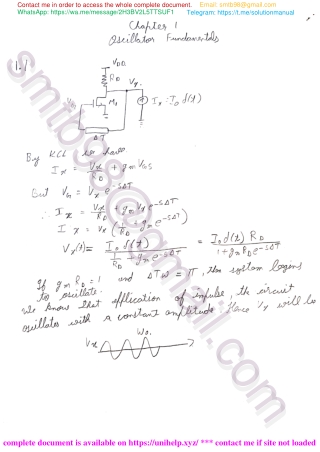 Contact me in order to access the whole complete document. Email: smtb98@gmail.com
WhatsApp: https://wa.me/message/2H3BV2L5TTSUF1 Telegram: https://t.me/solutionmanual
Chapter 1
Oscillator Fundamentals
1.1
VDD
RD
Vx
M1
Ix = I0 δ(t)
ΔT
By KCL we have
Ix = Vx/RD + gm VGS
But VG = Vx e^-SΔT
∴ Ix = Vx/RD + gm Vx e^-SΔT
Ix = Vx (1/RD + gm e^-SΔT)
Vx(t) = I0 δ(t) / (1/RD + gm e^-SΔT) = I0 δ(t) RD / (1 + gm RD e^-SΔT)
If gm RD = 1 and ΔTω = π, the system begins
to oscillate.
We know that application of Impulse, the circuit
oscillates with a constant amplitude. Hence Vx will be
Vx
smtb98@gmail.com
complete document is available on https://unihelp.xyz/ *** contact me if site not loaded